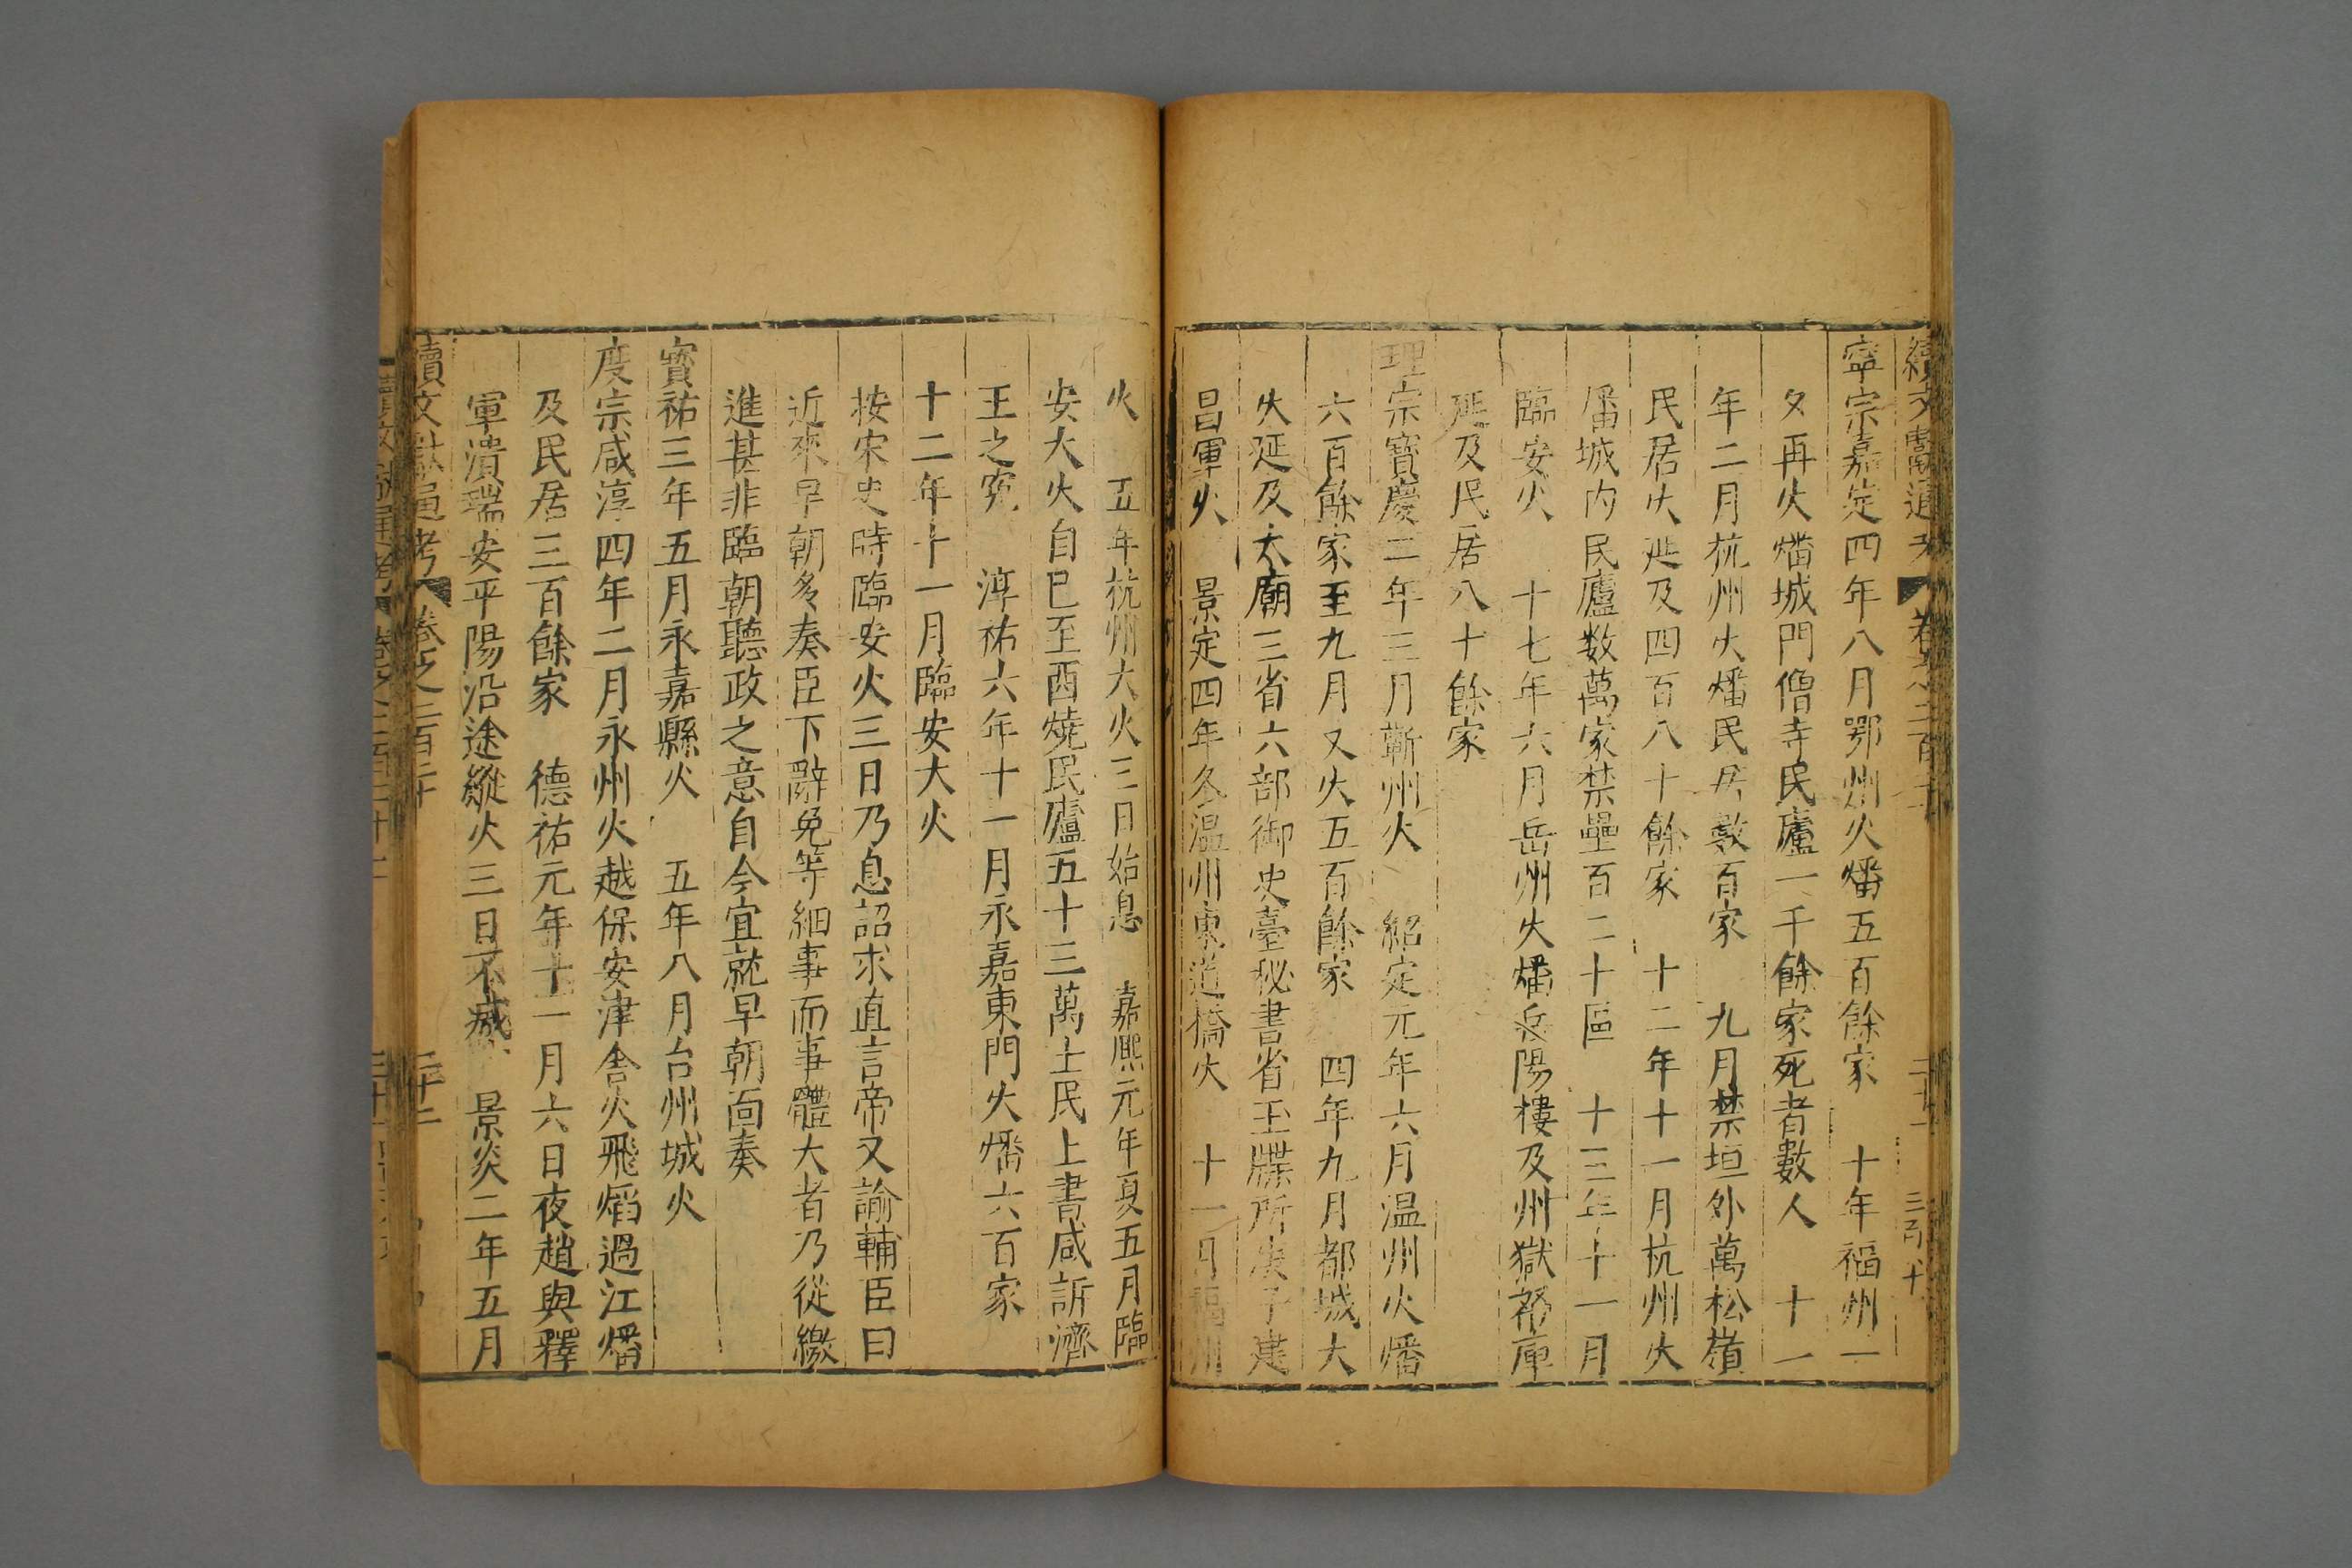 寧宗嘉定四年八月鄂州火燔五百餘家 十年福州一
夕再火燔城門僧寺民廬一千餘家死者數人 十一
年二月杭州火燔民居數百家 九月禁垣外萬松嶺
民居火延及四百八十餘家 十二年十一月杭州火
燔城内民廬数萬家禁壘百二十區 十三年十一月
臨安火 十七年六月岳州火燔岳陽樓及州獄帑庫
延及民居八十餘家
理宗寶慶二年三月蘄州火 紹定元年六月温州火燔
六百餘家至九月又火五百餘家 四年九月都城大
火延及太廟三省六部御史臺秘書省玉牒所庚子建
昌軍火 景定四年冬温州東道橋火 十一月福州
火 五年杭州大火三日始息 嘉熙元年夏五月臨
安大火自巳至酉燒民廬五十三萬士民上書咸訴濟
王之寃 淳祐六年十一月永嘉東門火燔六百家
十二年十一月臨安大火
按宋史時臨安火三日乃息詔求直言帝又諭輔臣曰
近來早朝多奏臣下辭免等細事而事體大者乃從繳
進甚非臨朝聽政之意自今宜就早朝面奏
寶祐三年五月永嘉縣火 五年八月台州城火
度宗咸淳四年二月永州火越保安津舎火飛熖過江燔
及民居三百餘家 德祐元年十一月六日夜趙與釋
軍潰瑞安平陽沿途縱火三日不滅 景炎二年五月
續文獻通考 卷之二百二十